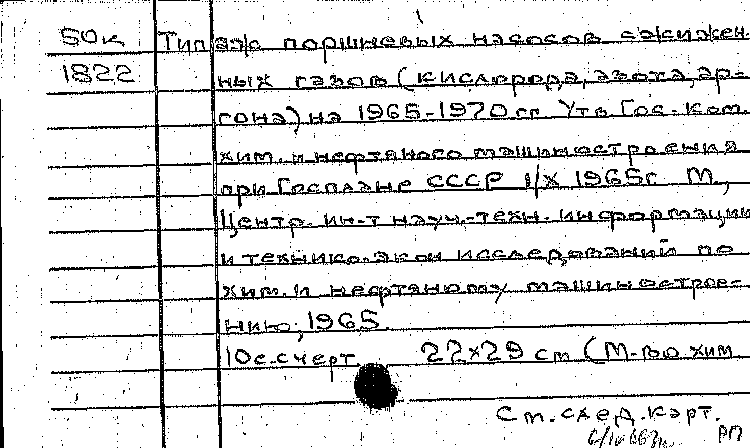 50к Типаж поршневых насосов сжижен-
1822 ных газов (кислорода, азота, ар-
гона) на 1965-1970 гг. Утв. Гос. Ком.
хим. и нефтяного машиностроения
при Госплане СССР 1/X 1965г. М.,
Центр. ин-т науч.-техн. информации
и технико-экон. исследований по
хим. и нефтяному машинострое-
нию, 1965.
10 с. с черт. 22×29 см (М-во хим.
См. след. карт.
РП